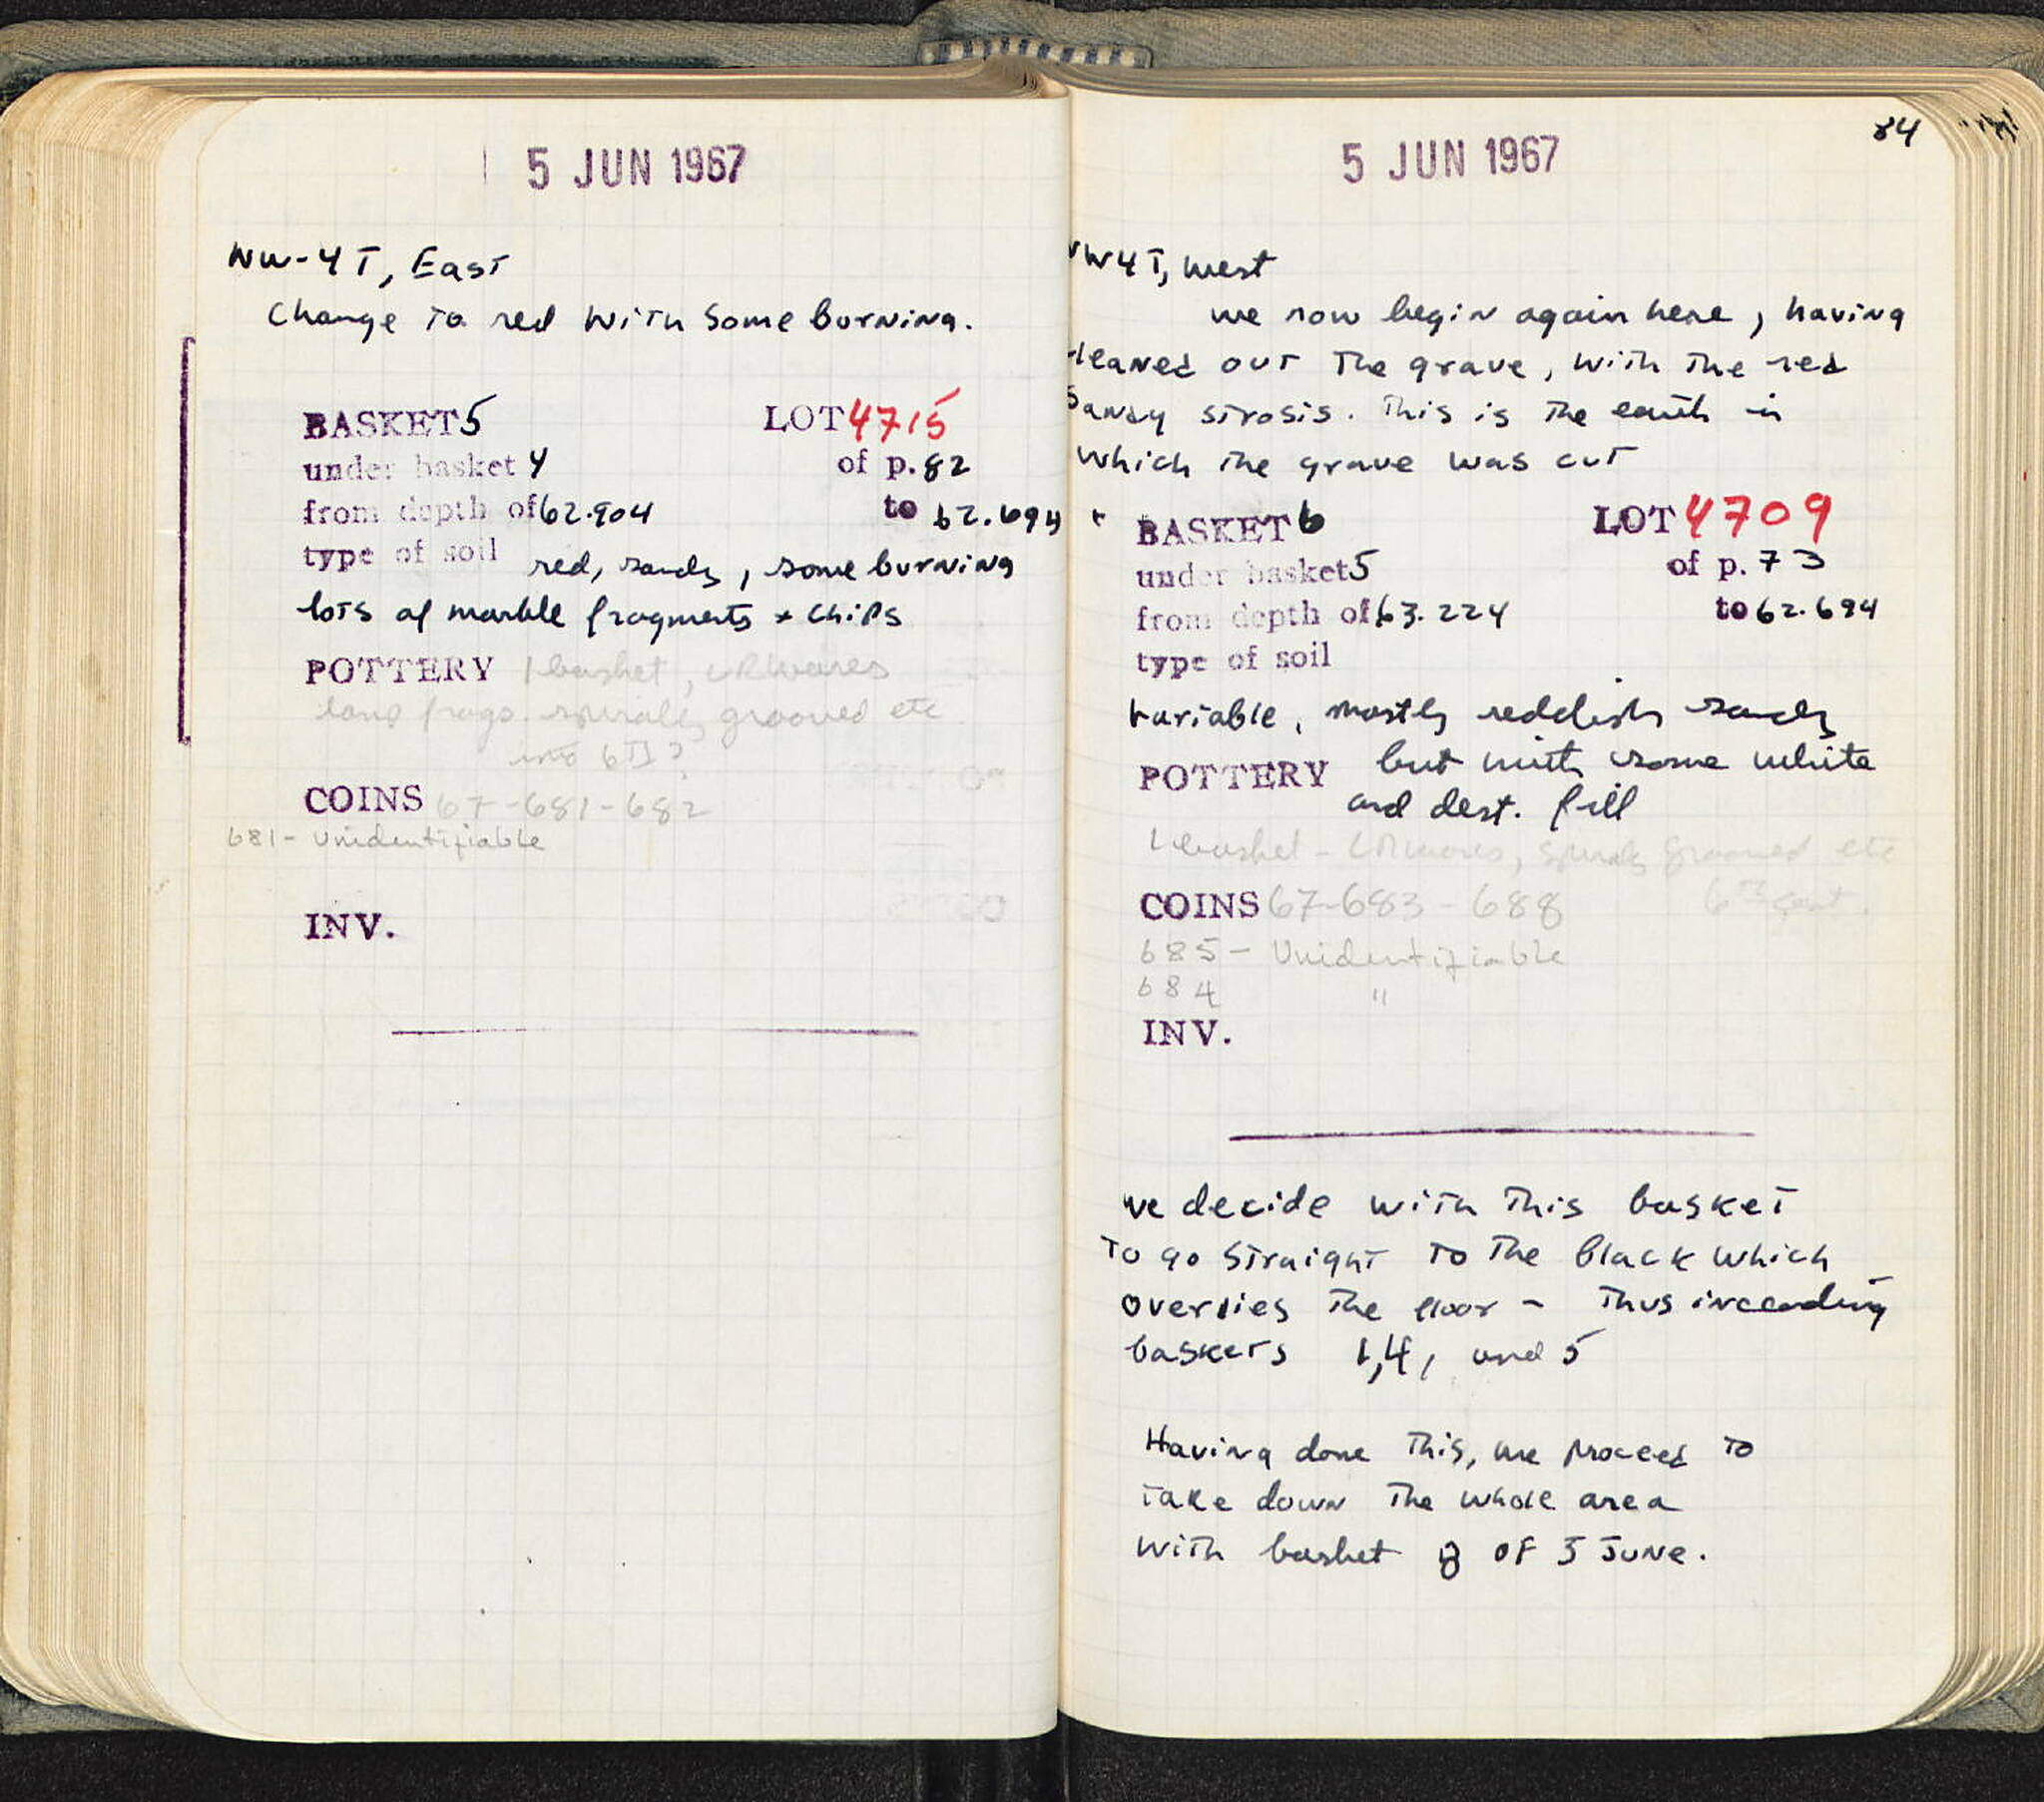 5 JUN 1967
NW-4T, East
Change to red with some burning.
BASKET 5 LOT 4715
under basket 4 of p. 82
from depth of 62.904 to 62.694
type of soil red, sandy, some burning
lots of marble fragments + chips
POTTERY 1 basket, LR wares
lamp frags. spirally grooved etc
into 6th?
COINS 67-681-682
681- Unidentifiable
INV.
84
5 JUN 1967
NW4T, West
we now begin again here, having
cleaned out the grave, with the red
sandy strosis. This is the earth in
which the grave was cut
BASKET 6 LOT 4709
under basket 5 of p. 73
from depth of 63.224 to 62.694
type of soil
variable, mostly reddish sandy
but with some white
POTTERY
and dest. fill
1 basket - LR wares, spirally grooved etc
6th cent.
COINS 67-683 - 688
685 - Unidentifiable
684 "
INV.
we decide with this basket
to go straight to the black which
overlies the floor - thus including
baskets 1, 4, and 5
Having done this, we proceed to
take down the whole area
with basket 8 of 5 June.